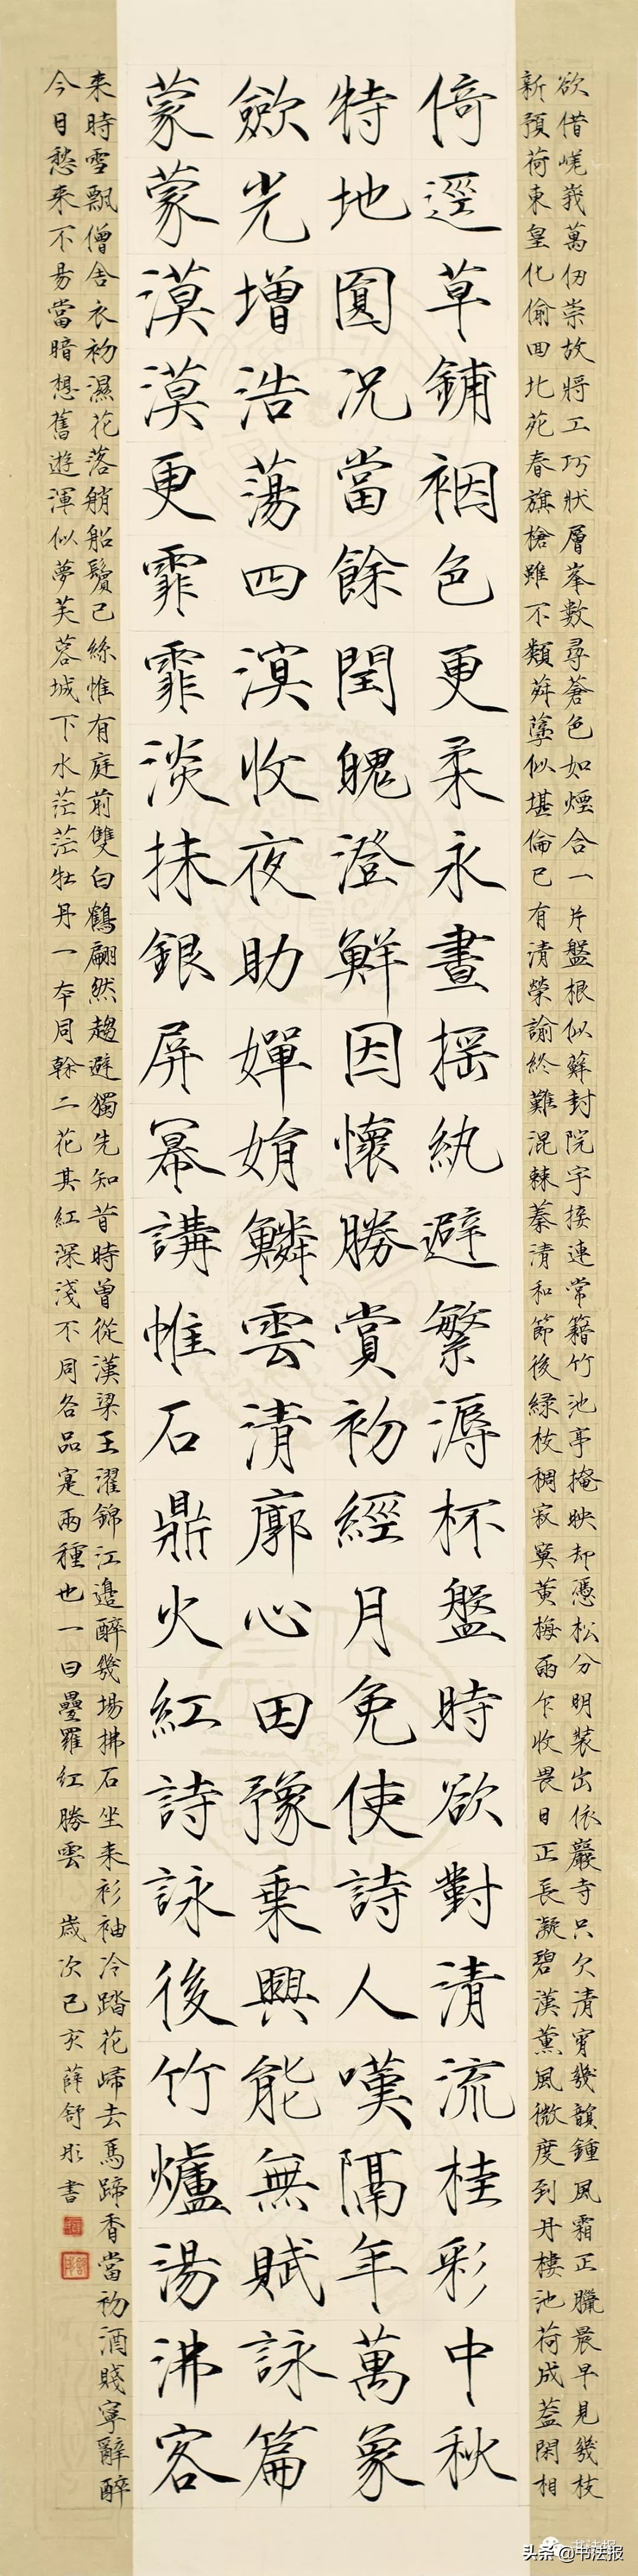 欲借嵯峩萬仞崇故將工巧狀層峯數尋蒼色如煙合一片盤根似蘚封院宇接連常籍竹池亭掩映却憑松分明裝出依巖寺只欠清宵幾韻鍾風霜正臘晨早見幾枝
新預荷東皇化偷回北苑春旗槍雖不類荈蕚似堪倫已有清榮諭終難混棘蓁清和節後緑枝稠寂寞黄梅雨乍收畏日正長凝碧漢薰風微度到丹樓池荷成蓋閑相
倚逕草鋪裀色更柔永晝揺紈避繁溽杯盤時欲對清流桂彩中秋
特地圓况當餘閏魄澄鮮因懷勝賞初經月免使詩人嘆隔年萬象
斂光增浩蕩四溟收夜助嬋娟鱗雲清廓心田豫乗興能無賦詠篇
蒙蒙漠漠更霏霏淡抹銀屏冪講帷石鼎火紅詩詠後竹爐湯沸客
来時雪飄僧舍衣初濕花落艄船鬢已絲惟有庭前雙白鶴翩然趨避獨先知昔時曾從漢梁王濯錦江邉醉幾場拂石坐来衫袖冷踏花歸去馬蹄香當初酒賤寧辭醉
今日愁来不易當暗想舊遊渾似夢芙蓉城下水茫茫牡丹一本同榦二花其紅深淺不同名品寔兩種也一曰疊羅紅勝雲 歳次己亥薛舒彤書
头条@书法报
书法报